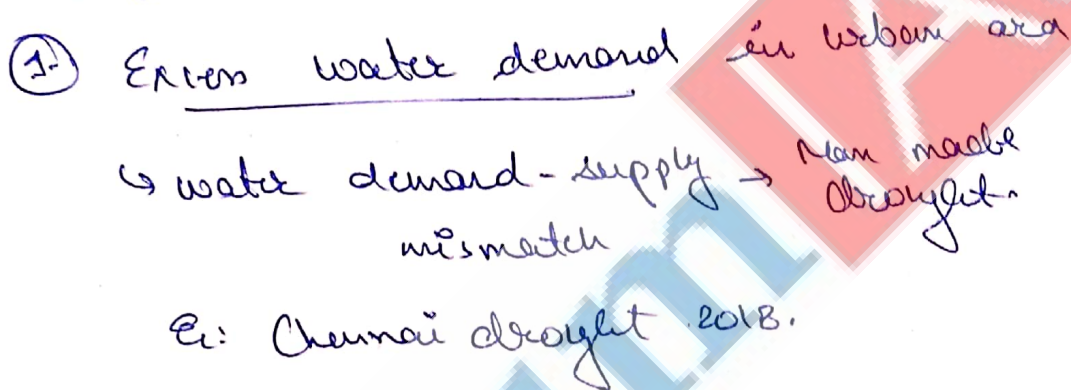 1. Excess water demand in urban area
↳ water demand - supply → Man made
mismatch drought.
Ex: Chennai drought 2018.